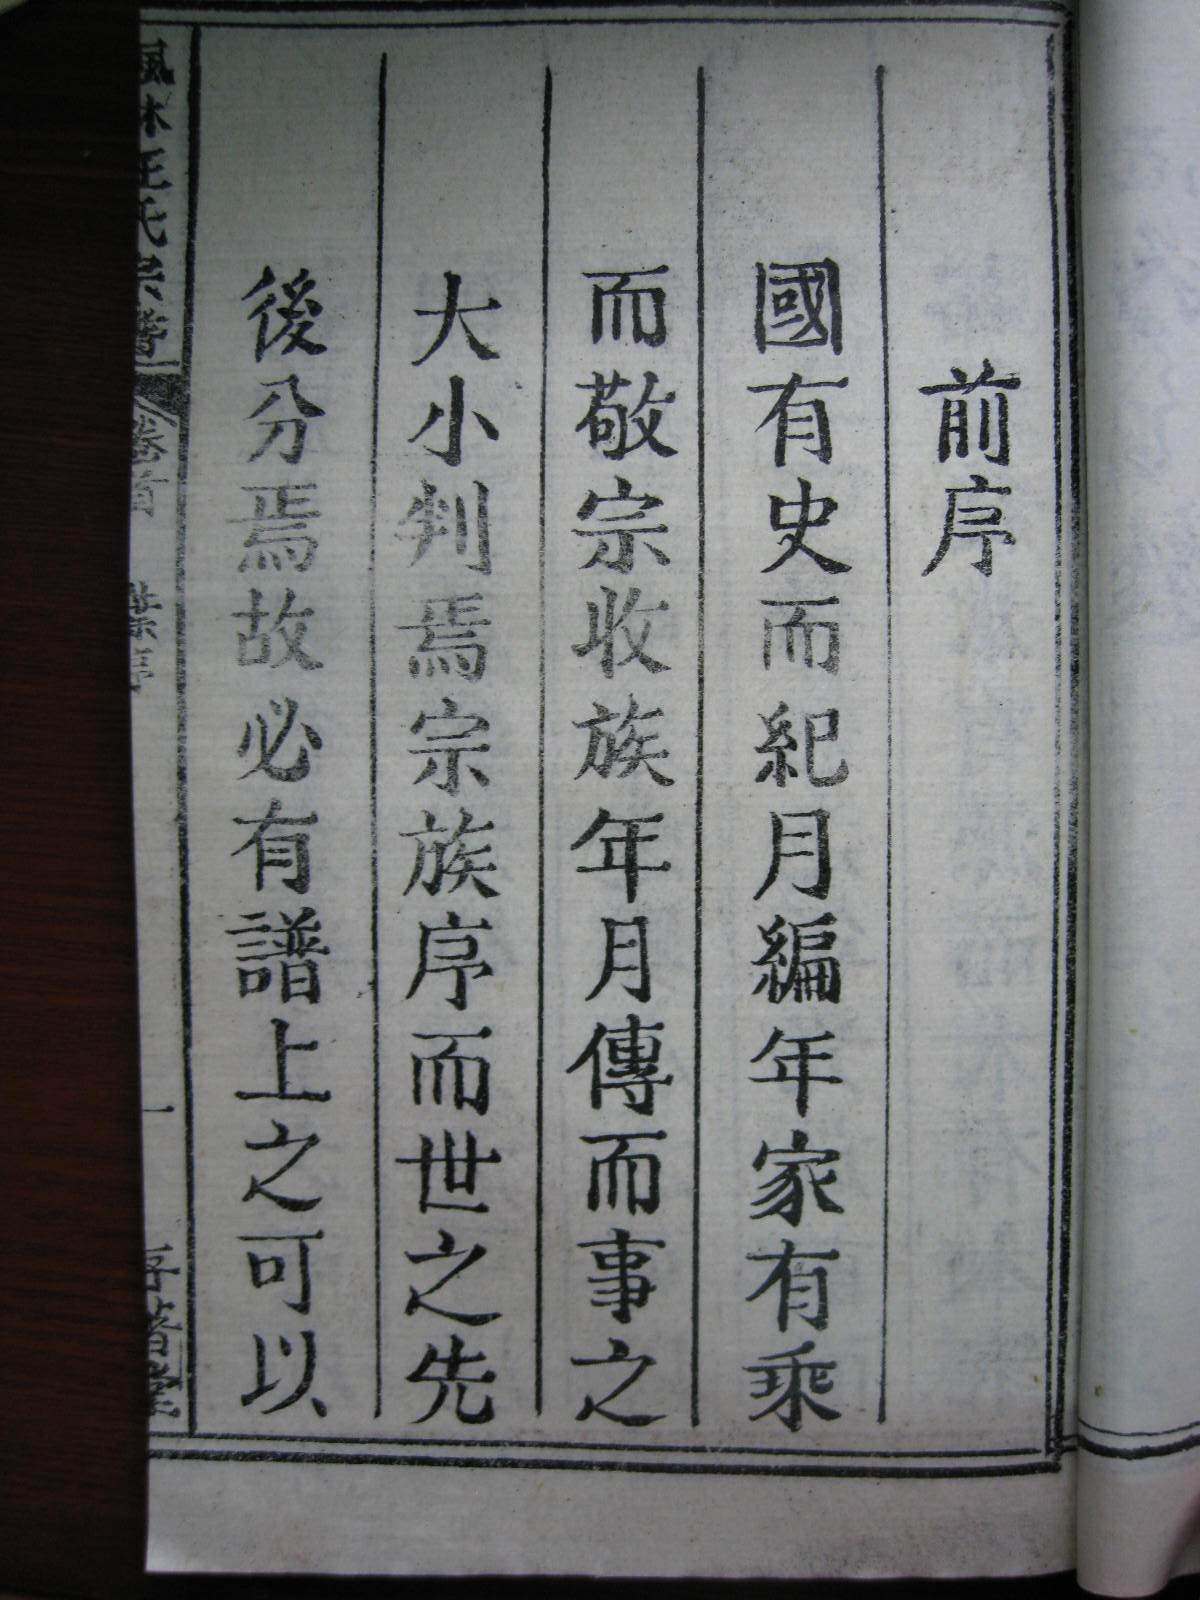 前序
國有史而紀月編年家有乘
而敬宗收族年月傳而事之
大小判焉宗族序而世之先
後分焉故必有譜上之可以
林王氏宗譜
卷首
一